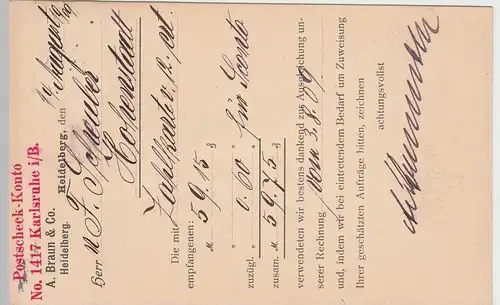 Postscheck-Konto
No. 1417 Karlsruhe i/B.
A. Braun & Co.
Heidelberg.
Heidelberg, den
Herr
Hohenstadt
Die mit Zahlkarte v. 2. ct.
empfangenen: M 59.15 ₰
zuzügl. " 0.60 " für Skonto
zusam. M 59.75 ₰
verwendeten wir bestens dankend zur Ausgleichung un-
serer Rechnung vom 3.8.09
und, indem wir bei eintretendem Bedarf um Zuweisung
Ihrer geschätzten Aufträge bitten, zeichnen
achtungsvollst